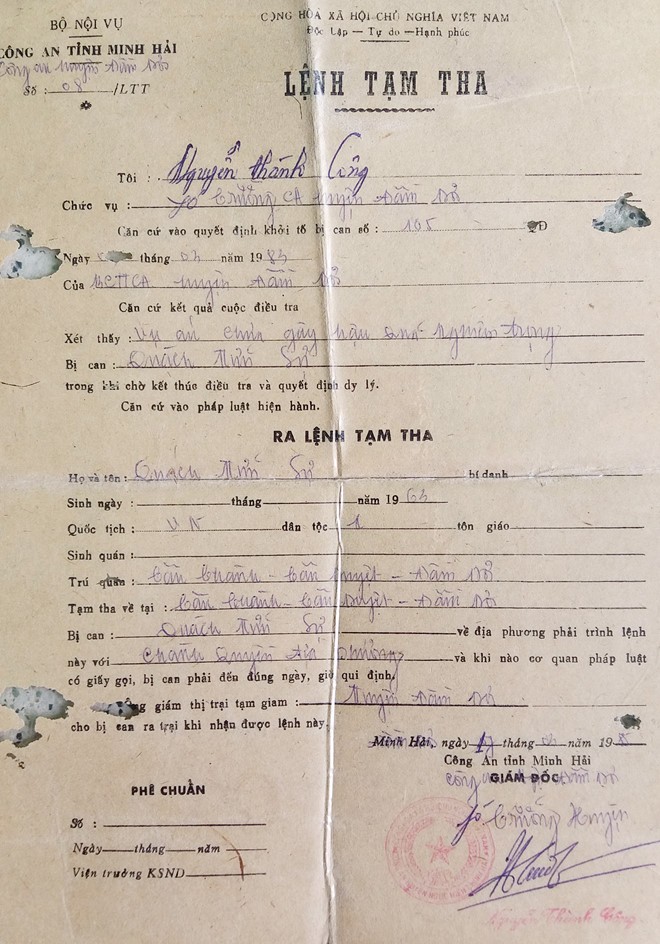 BỘ NỘI VỤ
CỘNG HÒA XÃ HỘI CHỦ NGHĨA VIỆT NAM
CÔNG AN TỈNH MINH HẢI
Độc Lập — Tự do — Hạnh phúc
Công an huyện Đầm Dơi
Số : 08 /LTT
LỆNH TẠM THA
Tôi : Nguyễn Thành Công
Chức vụ : Trưởng CA huyện Đầm Dơi
Căn cứ vào quyết định khởi tố bị can số : 105 QĐ
Ngày tháng 03 năm 19
Của huyện Đầm Dơi
Căn cứ kết quả cuộc điều tra
Xét thấy : Vụ án chưa gây hậu quả nghiêm trọng
Bị can : Quách Mưu Sự
trong khi chờ kết thúc điều tra và quyết định dy lý.
Căn cứ vào pháp luật hiện hành.
RA LỆNH TẠM THA
Họ và tên : Quách Mưu Sự bí danh
Sinh ngày : tháng năm 19
Quốc tịch : VN dân tộc tôn giáo
Sinh quán :
Trú quán : Tân Duyệt – Đầm Dơi
Tạm tha về tại : Tân Duyệt – Đầm Dơi
Bị can : Quách Mưu Sự về địa phương phải trình lệnh
này với chánh quyền địa phương và khi nào cơ quan pháp luật
có giấy gọi, bị can phải đến đúng ngày, giờ qui định.
Ông giám thị trại tạm giam : huyện Đầm Dơi
cho bị can ra trại khi nhận được lệnh này.
Minh Hải, ngày 17 tháng năm 19
Công An tỉnh Minh Hải
Công an huyện Đầm Dơi
GIÁM ĐỐC
PHÊ CHUẨN
Trưởng huyện
Số :
Ngày tháng năm
Viện trưởng KSND
Nguyễn Thành Công